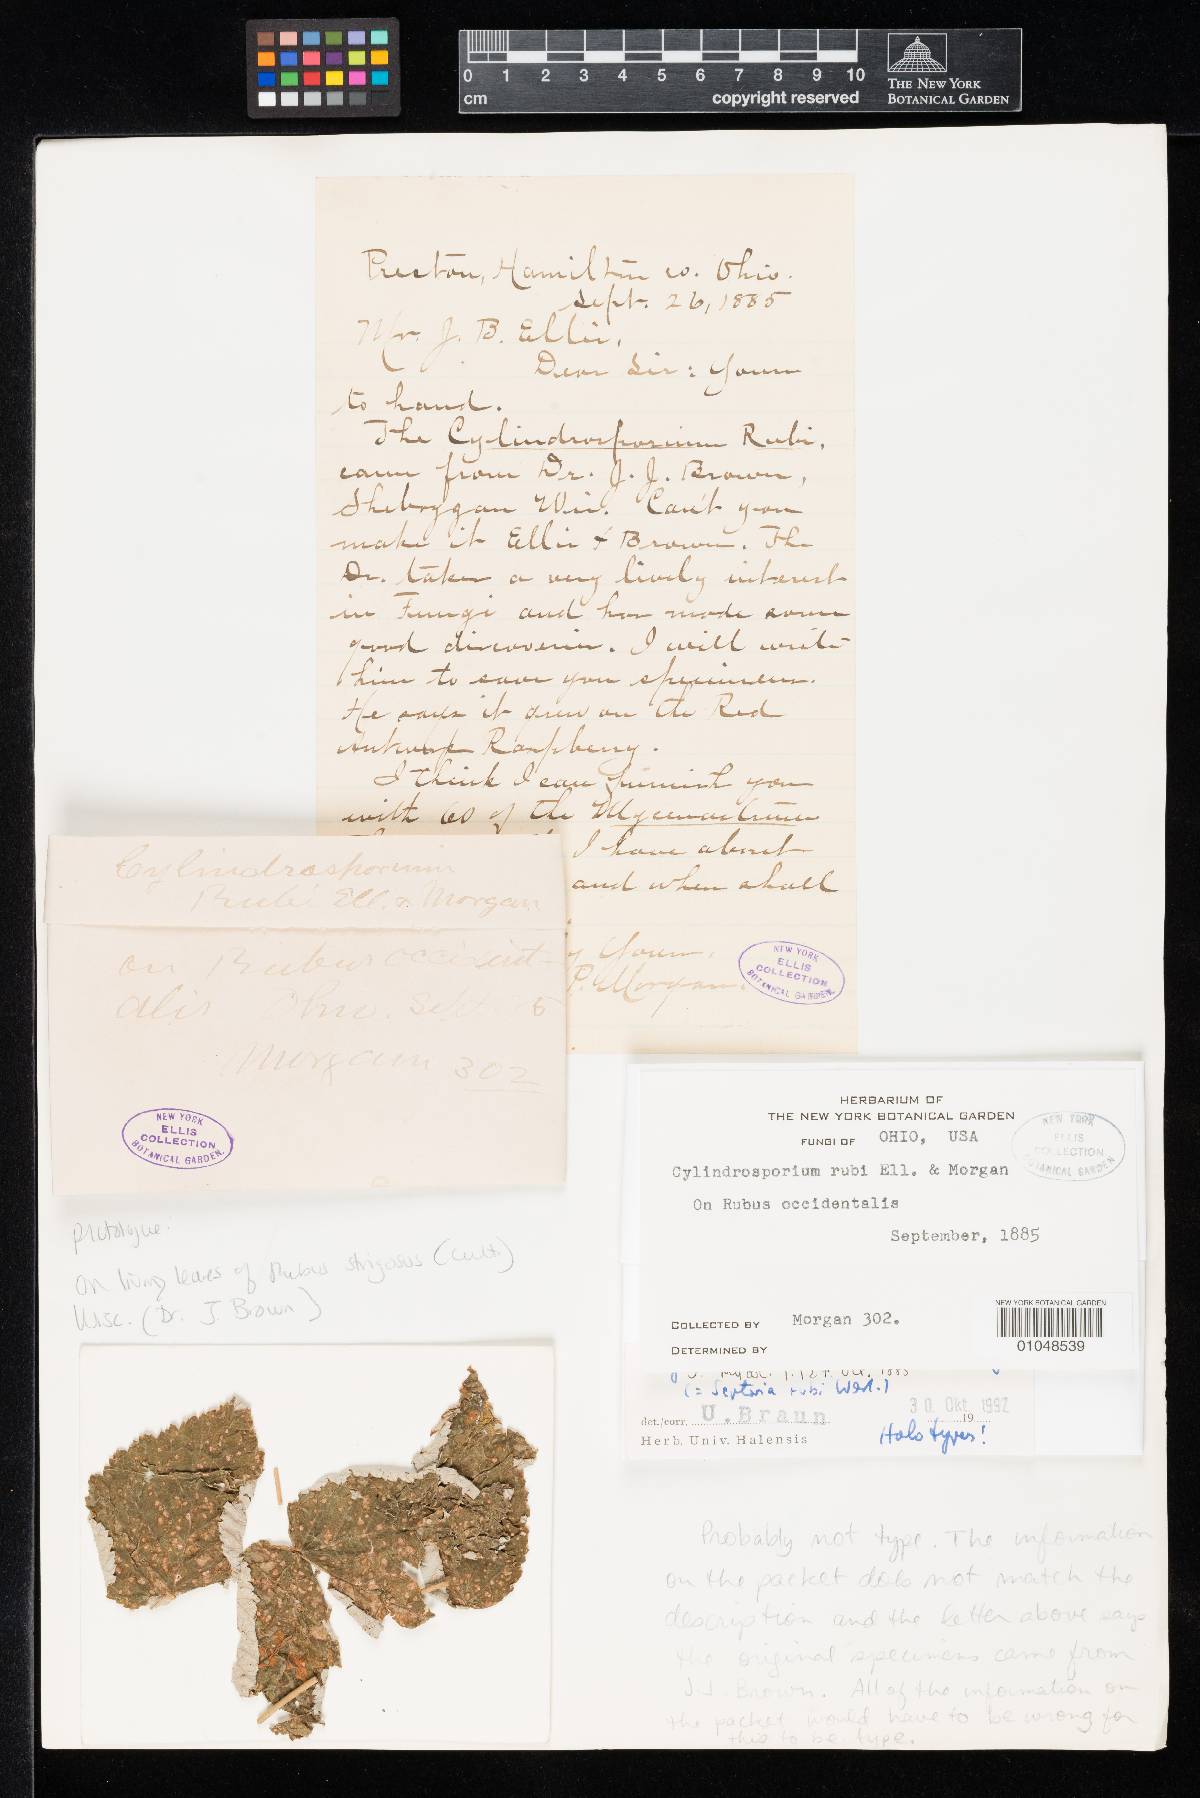 0 1 2 3 4 5 6 7 8 9 10
cm
copyright reserved
THE NEW YORK
BOTANICAL GARDEN
Preston, Hamilton co. Ohio.
Sept. 26, 1885
Mr. J. B. Ellis,
Dear Sir: Yours
to hand.
The Cylindrosporium Rubi,
came from Dr. J. J. Brown,
Sheboygan Wis. Can't you
make it Ellis & Brown. The
Dr. takes a very lively interest
in Fungi and has made some
good discoveries. I will write
him to save you specimens.
He says it grew on the Red
Antwerp Raspberry.
I think I can furnish you
with 60 of the Mycenastrum
I have about
and when shall
Yours,
P. Morgan.
NEW YORK
ELLIS
COLLECTION
BOTANICAL GARDEN.
Cylindrosporium
Rubi Ell. & Morgan
on Rubus occident-
alis Ohio. Sept. 85
Morgan 302
NEW YORK
ELLIS
COLLECTION
BOTANICAL GARDEN.
HERBARIUM OF
THE NEW YORK BOTANICAL GARDEN
FUNGI OF OHIO, USA
NEW YORK
ELLIS
COLLECTION
BOTANICAL GARDEN
Cylindrosporium rubi Ell. & Morgan
On Rubus occidentalis
September, 1885
COLLECTED BY Morgan 302.
DETERMINED BY
NEW YORK BOTANICAL GARDEN
01048539
(= Septoria rubi West.)
det./corr. U. Braun 30. Okt. 1992 19
Herb. Univ. Halensis Holotypes!
protologue.
On living leaves of Rubus strigosus (cult.)
Wisc. (Dr. J. Brown)
Probably not type. The information
on the packet does not match the
description and the letter above says
the original specimens came from
J.J. Brown. All of the information on
the packet would have to be wrong for
this to be type.